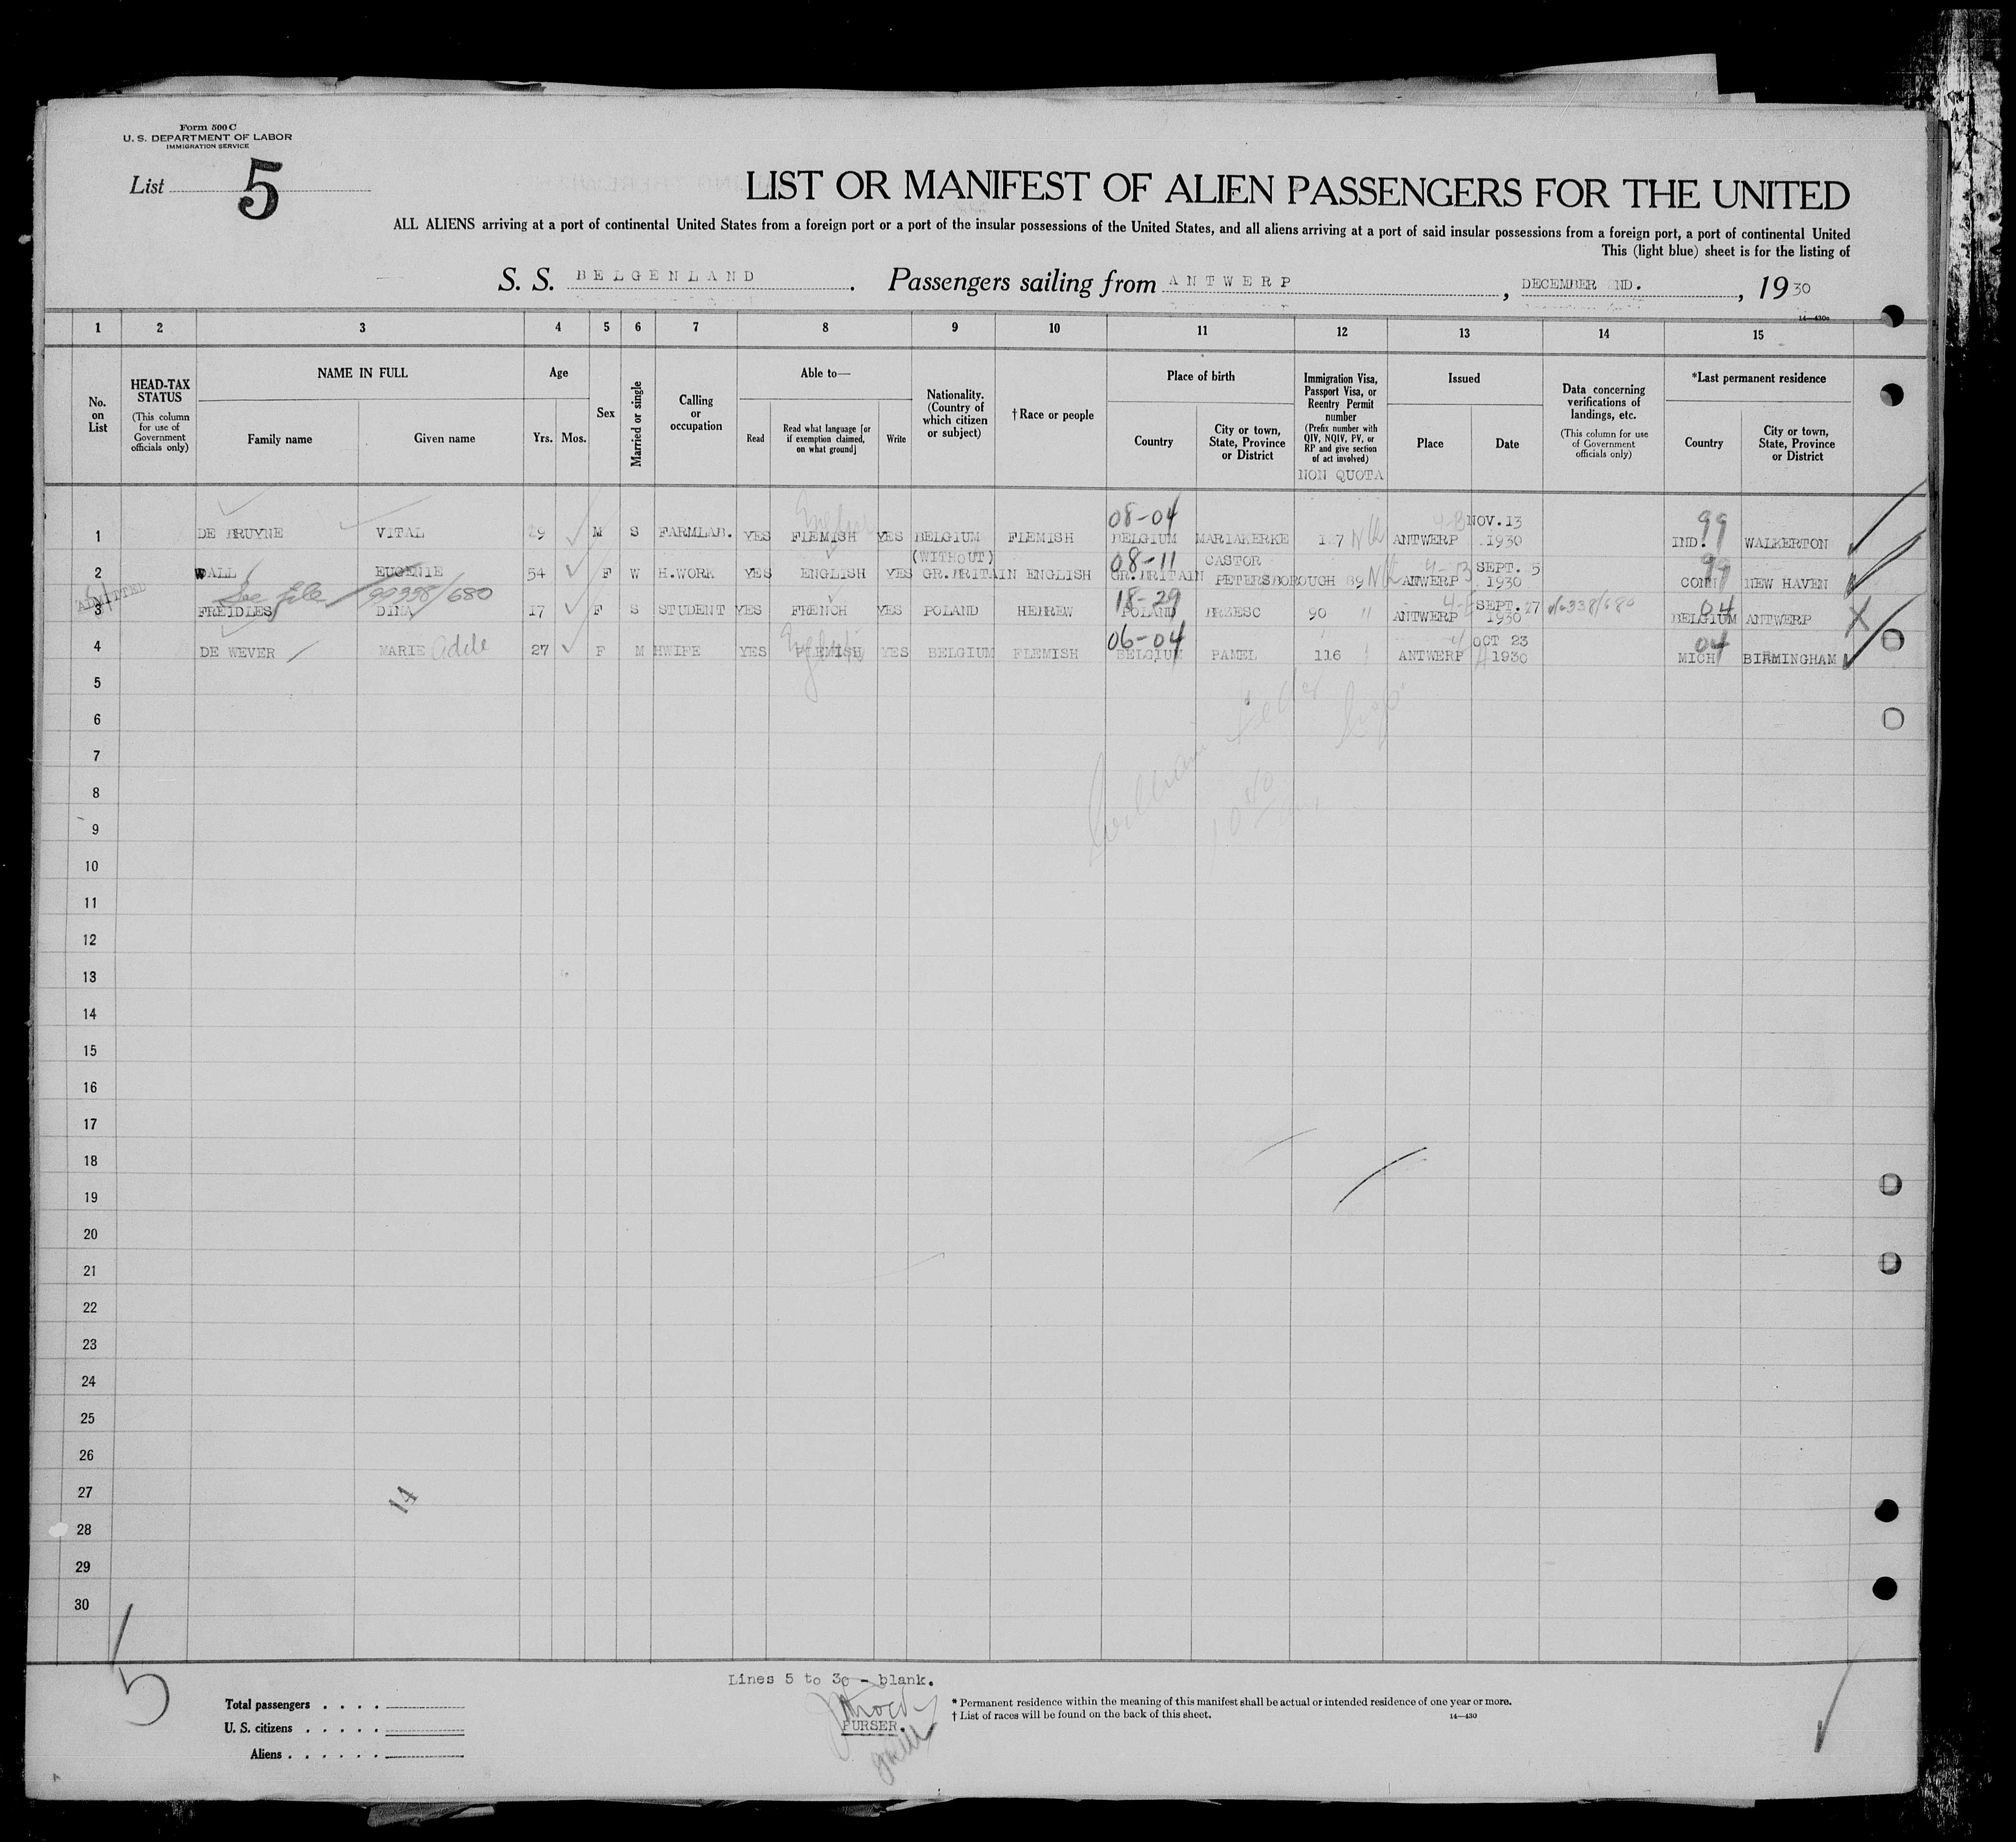 Form 500 C
U. S. DEPARTMENT OF LABOR
IMMIGRATION SERVICE
List 5
LIST OR MANIFEST OF ALIEN PASSENGERS FOR THE UNITED
ALL ALIENS arriving at a port of continental United States from a foreign port or a port of the insular possessions of the United States, and all aliens arriving at a port of said insular possessions from a foreign port, a port of continental United
This (light blue) sheet is for the listing of
S. S. BELGENLAND. Passengers sailing from ANTWERP, DECEMBER ND., 1930
14—430c
1 2 3 4 5 6 7 8 9 10 11 12 13 14 15
No. on List
HEAD-TAX STATUS
(This column for use of Government officials only)
NAME IN FULL
Family name
Given name
Age
Yrs. Mos.
Sex
Married or single
Calling or occupation
Able to—
Read
Read what language [or if exemption claimed, on what ground]
Write
Nationality. (Country of which citizen or subject)
† Race or people
Place of birth
Country
City or town, State, Province or District
Immigration Visa, Passport Visa, or Reentry Permit number
(Prefix number with QIV, NQIV, PV, or RP and give section of act involved)
NON QUOTA
Issued
Place
Date
Data concerning verifications of landings, etc.
(This column for use of Government officials only)
*Last permanent residence
Country
City or town, State, Province or District
English 08-04 NOV.13 99
1 DE BRUYNE VITAL 29 M S FARMLAB. YES FLEMISH YES BELGIUM FLEMISH BELGIUM MARIAKERKE ANTWERP 1930 IND. WALKERTON
(WITHOUT) 08-11 CASTOR SEPT. 5 99
2 WALL EUGENIE 54 F W H.WORK YES ENGLISH YES GR.BRITAIN ENGLISH GR.BRITAIN PETERSBOROUGH 89 ANTWERP 1930 CONN NEW HAVEN
ADMITTED See file 99338/680 18-29 SEPT. 27 04
3 FREIDLES DINA 17 F S STUDENT YES FRENCH YES POLAND HEBREW POLAND BRZESC 90 " ANTWERP 1930 BELGIUM ANTWERP
English 06-04 OCT 23 04
4 DE WEVER MARIE Adele 27 F M HWIFE YES FLEMISH YES BELGIUM FLEMISH BELGIUM PAMEL 116 ANTWERP 1930 MICH BIRMINGHAM
5
6
7
8
9
10
11
12
13
14
15
16
17
18
19
20
21
22
23
24
25
26
27
14
28
29
30
5
Lines 5 to 30 - blank.
PURSER.
Total passengers . . . .
U. S. citizens . . . . .
Aliens . . . . . .
* Permanent residence within the meaning of this manifest shall be actual or intended residence of one year or more.
† List of races will be found on the back of this sheet.
14—430